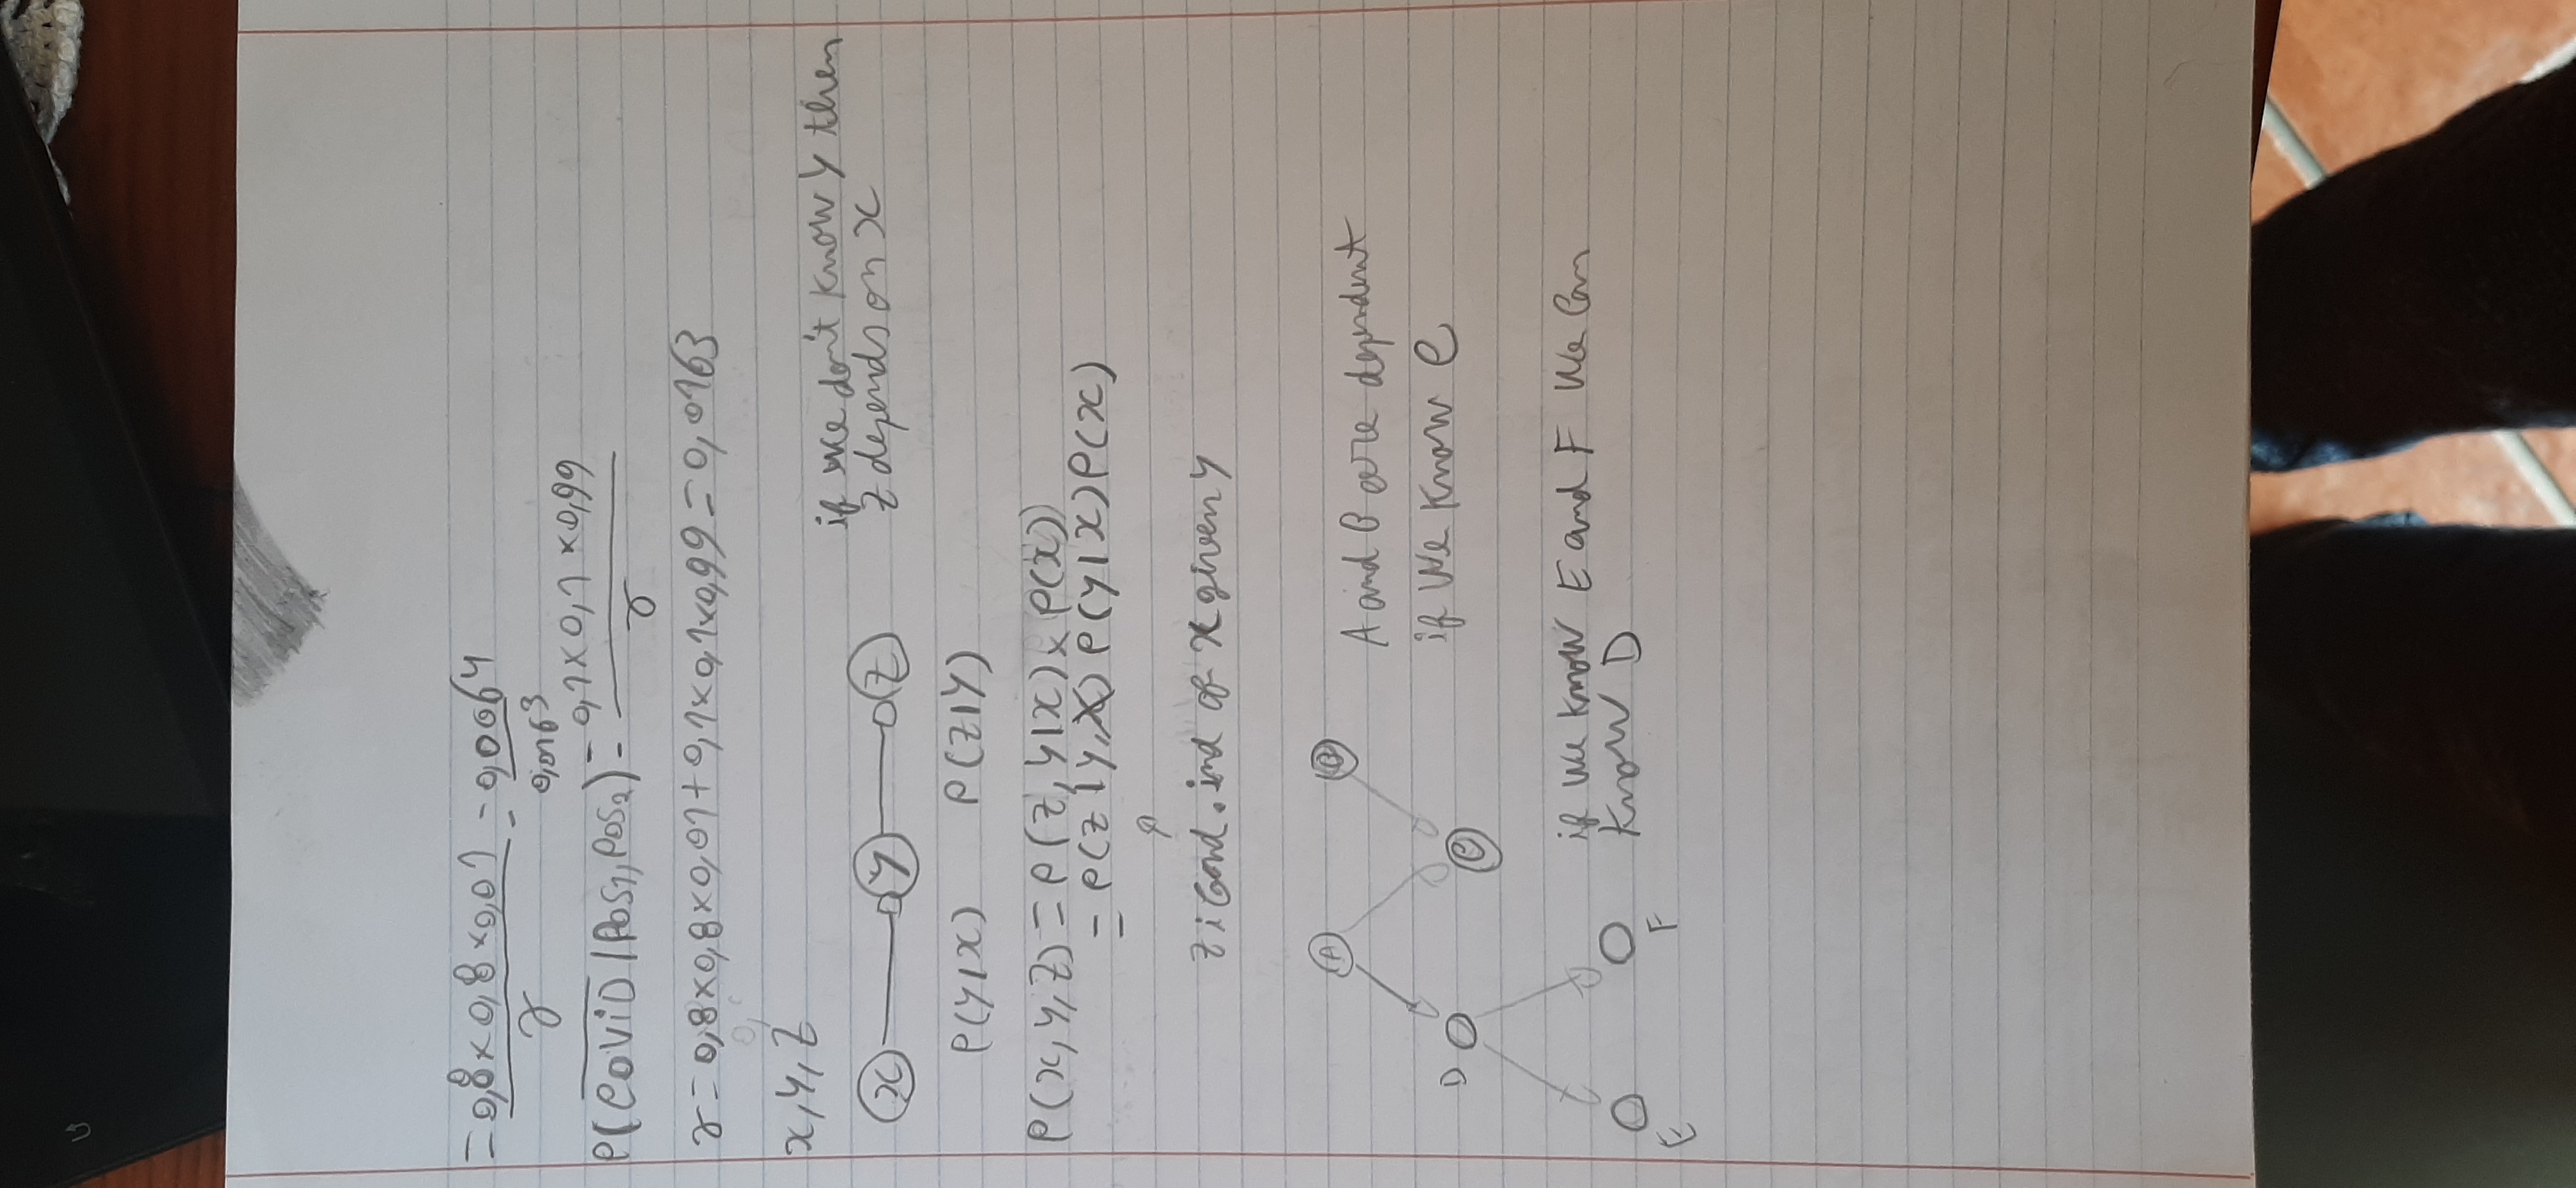 = 0,8 × 0,8 × 0,01 = 0,0064
γ 0,0163
P(COVID | POS1, POS2) = 0,1 × 0,1 × 0,99
γ
γ = 0,8 × 0,8 × 0,01 + 0,1 × 0,1 × 0,99 = 0,0163
x, y, z
if we don't know y then
x y z z depends on x
P(y|x) P(z|y)
P(x, y, z) = P(z, y|x) × P(x)
= P(z|y, x) P(y|x) P(x)
z i cond. ind of x given y
A B A and B are dependent
if we know C
D C
if we know E and F we can
know D
E F